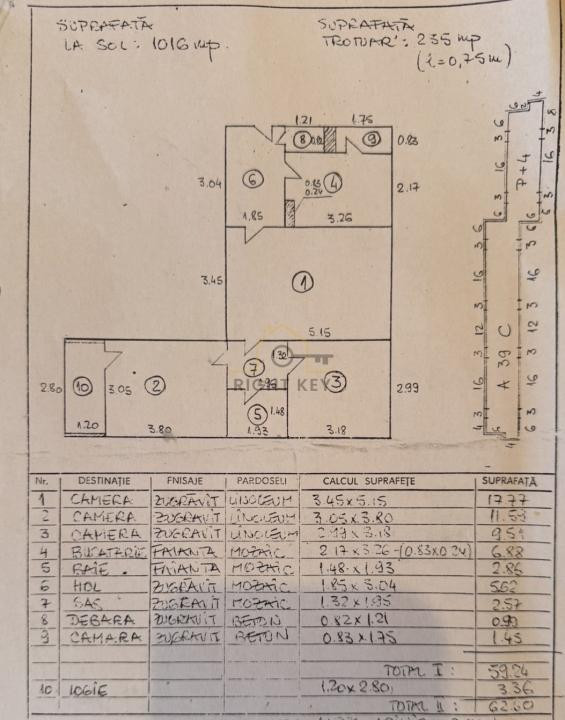 SUPRAFAȚĂ
LA SOL: 1016 mp.
SUPRAFAȚĂ
TROTUAR: 235 mp
(l=0,75m)
1.21 1.75
8 0.82 9 0.83
3.04 6 0.83 4 2.17
0.24
1.85 3.26
3.45 1
5.15
1.32
2.80 10 3.05 2 7 3 2.99
RIGHT KEY
5 1.48
1.20 3.80 1.93 3.18
P+4
A 39 C
Nr. DESTINAȚIE FNISAJE PARDOSELI CALCUL SUPRAFEȚE SUPRAFAȚĂ
1 CAMERA ZUGRĂVIT LINOLEUM 3.45 x 5.15 17.77
2 CAMERA ZUGRAVIT LINOLEUM 3.05 x 3.80 11.59
3 CAMERA ZUGRAVIT LINOLEUM 2.99 x 3.18 9.51
4 BUCATARIE FAIANTA MOZAIC 2.17 x 3.26 -(0.83x0.24) 6.88
5 BAIE FAIANTA MOZAIC 1.48 x 1.93 2.86
6 HOL ZUGRAVIT MOZAIC 1.85 x 3.04 5.62
7 SAS ZUGRAVIT MOZAIC 1.32 x 1.95 2.57
8 DEBARA ZUGRAVIT BETON 0.82 x 1.21 0.99
9 CAMARA ZUGRAVIT BETON 0.83 x 1.75 1.45
TOTAL I: 59.24
10 LOGIE 1.20 x 2.80 3.36
TOTAL II: 62.60